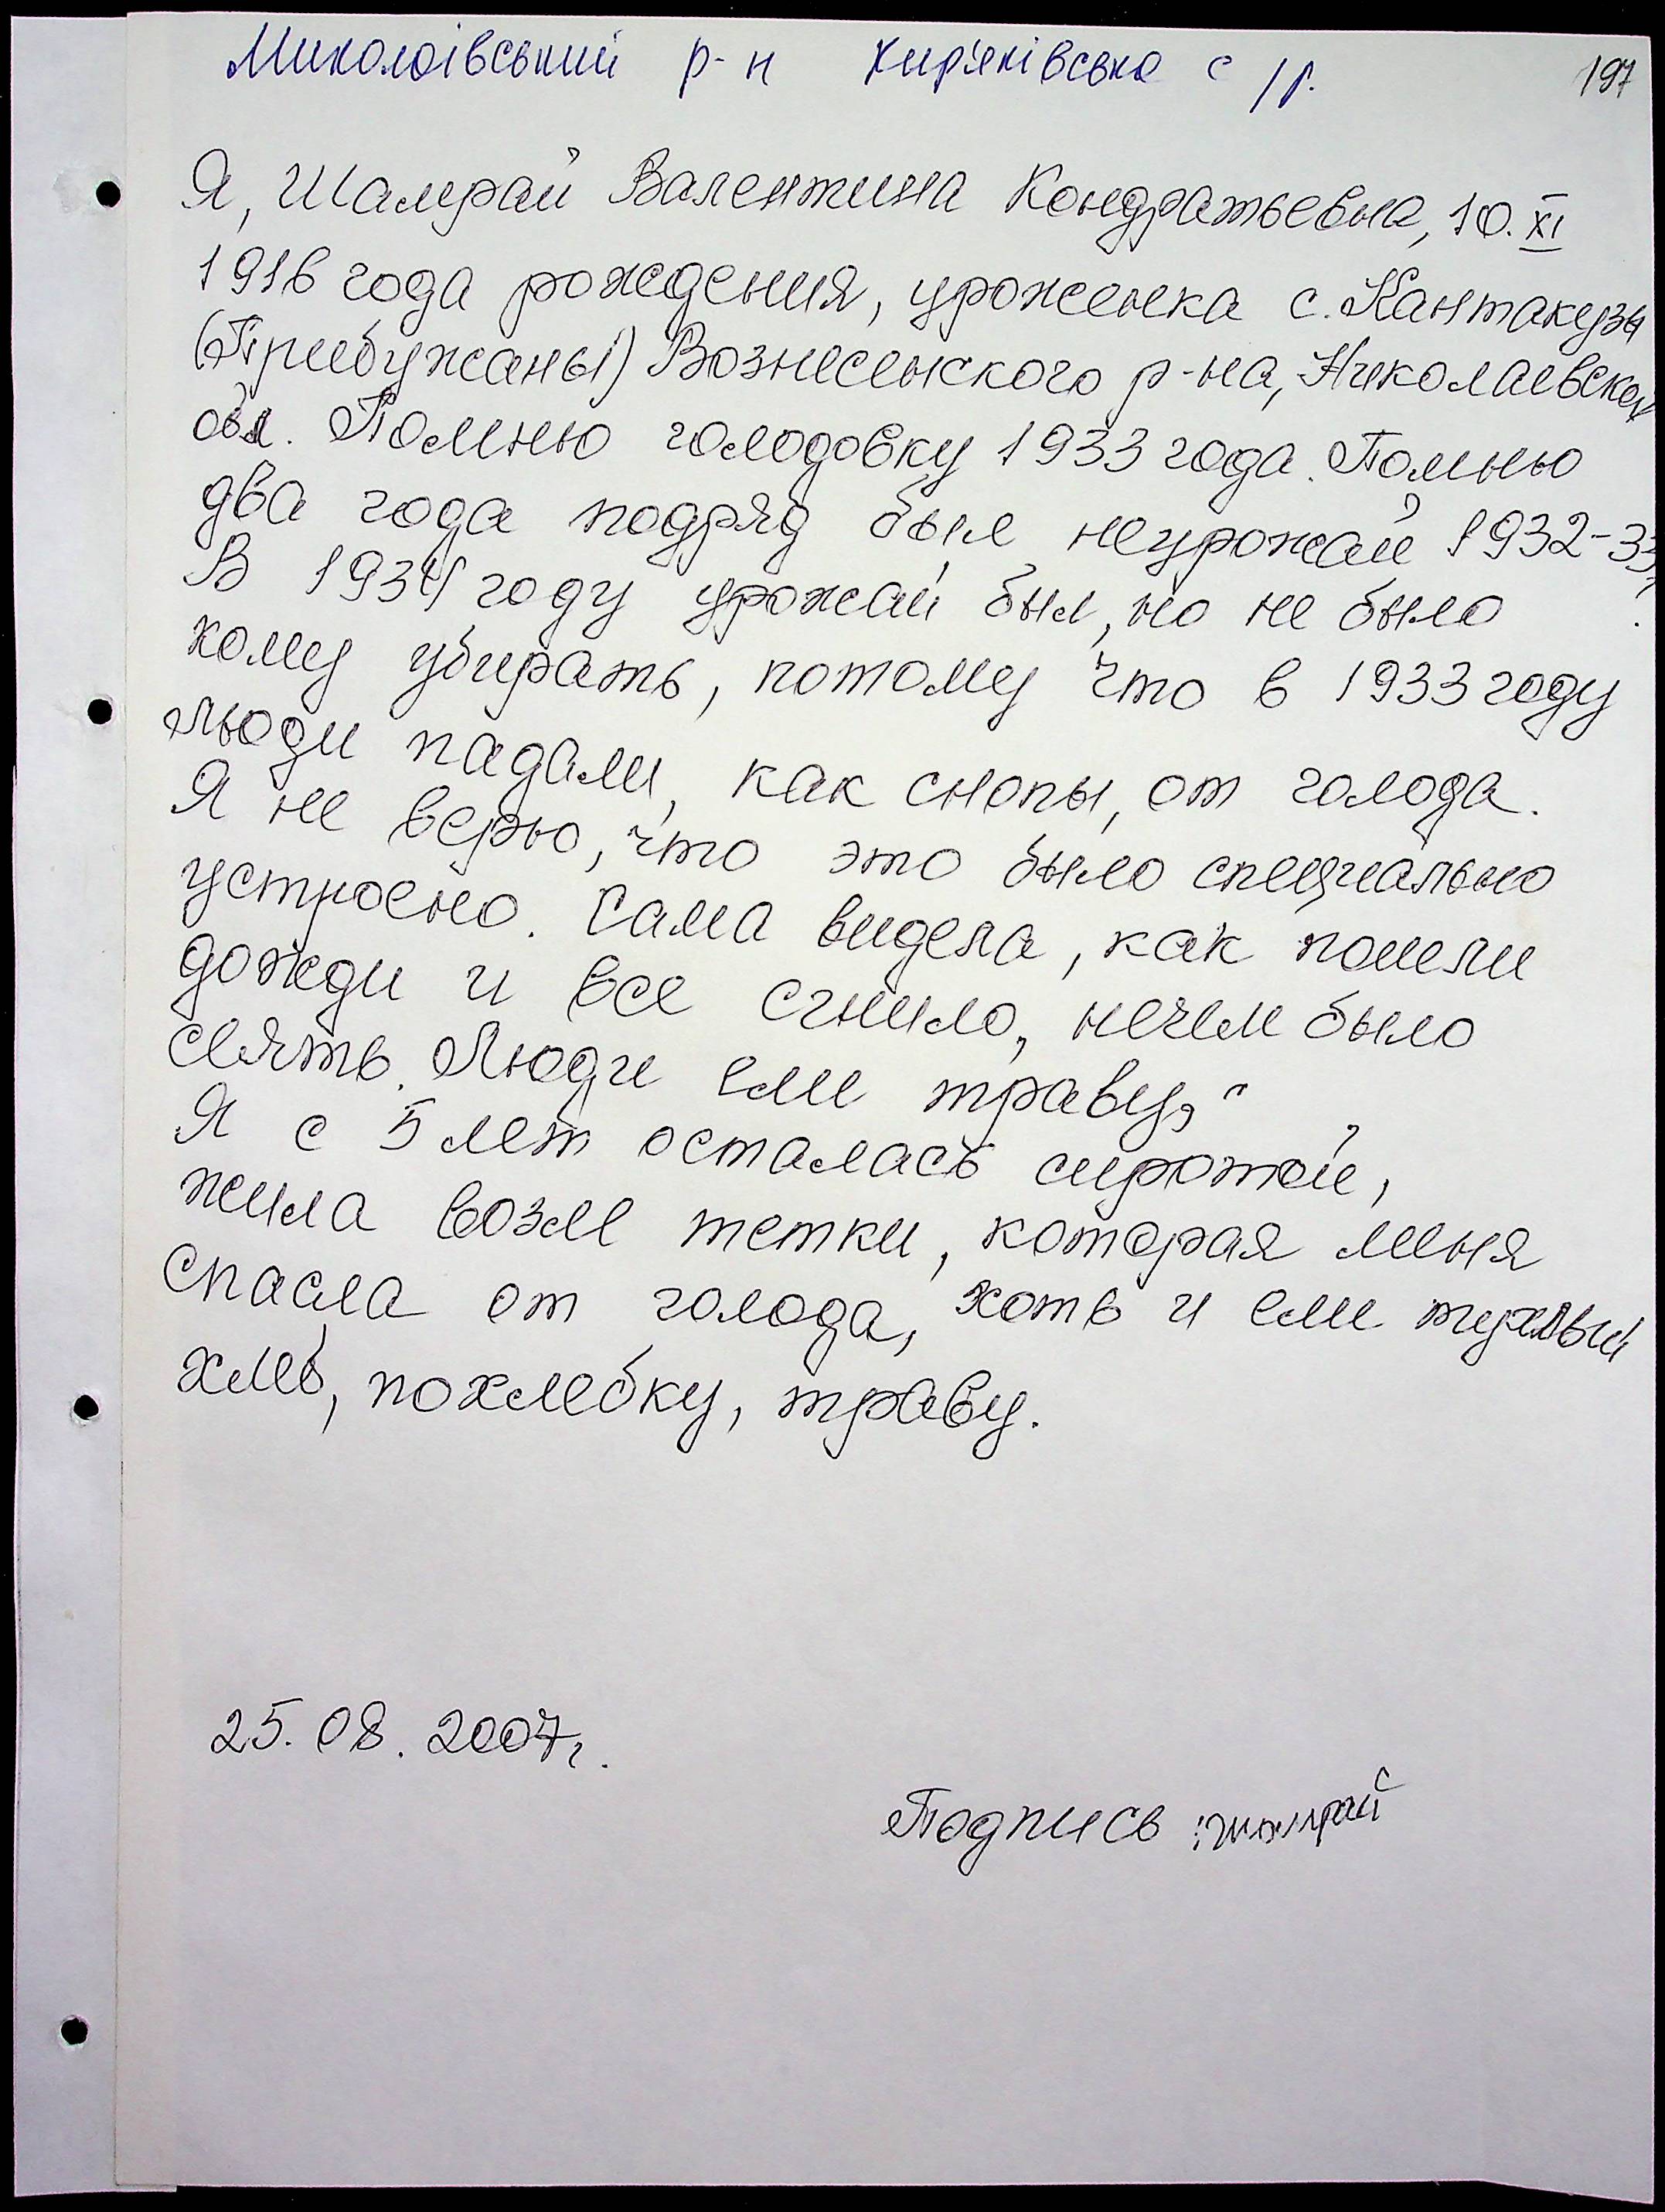 Миколоівський р-н Кир'яківська с/р. 197
Я, Шамрай Валентина Кондратьевна, 10.XI
1916 года рождения, уроженка с. Кантакузы
(Прибужаны) Вознесенского р-на, Николаевской
обл. Помню голодовку 1933 года. Помню
два года подряд был неурожай 1932-33,
В 1934 году урожай был, но не было
кому убирать, потому что в 1933 году
люди падали, как снопы, от голода.
Я не верю, что это было специально
устроено. Сама видела, как пошли
дожди и все сгнило, нечем было
сеять. Люди ели траву,
Я с 5 лет осталась сиротой,
жила возле тетки, которая меня
спасла от голода, хоть и ели тухлый
хлеб, похлебку, траву.
25.08.2007г.
Подпись: Шамрай